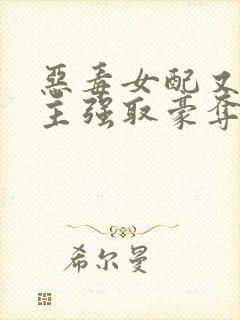 恶毒女配又
主强取豪夺
希尔曼